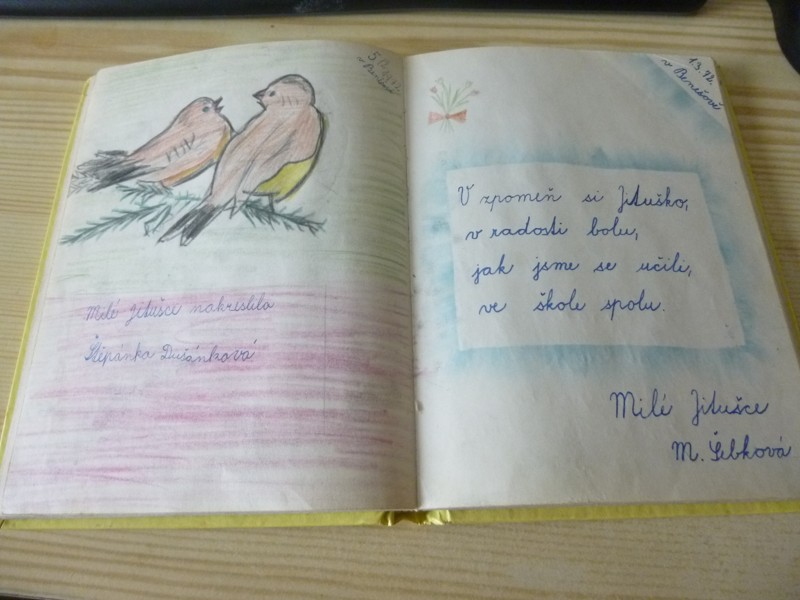 v Benešově
Milé Jitušce nakreslila
Štěpánka Dušánková
13. 12.
v Benešově
V zpomeň si Jituško,
v radosti bolu,
jak jsme se učili,
ve škole spolu.
Milé Jitušce
M. Šebková